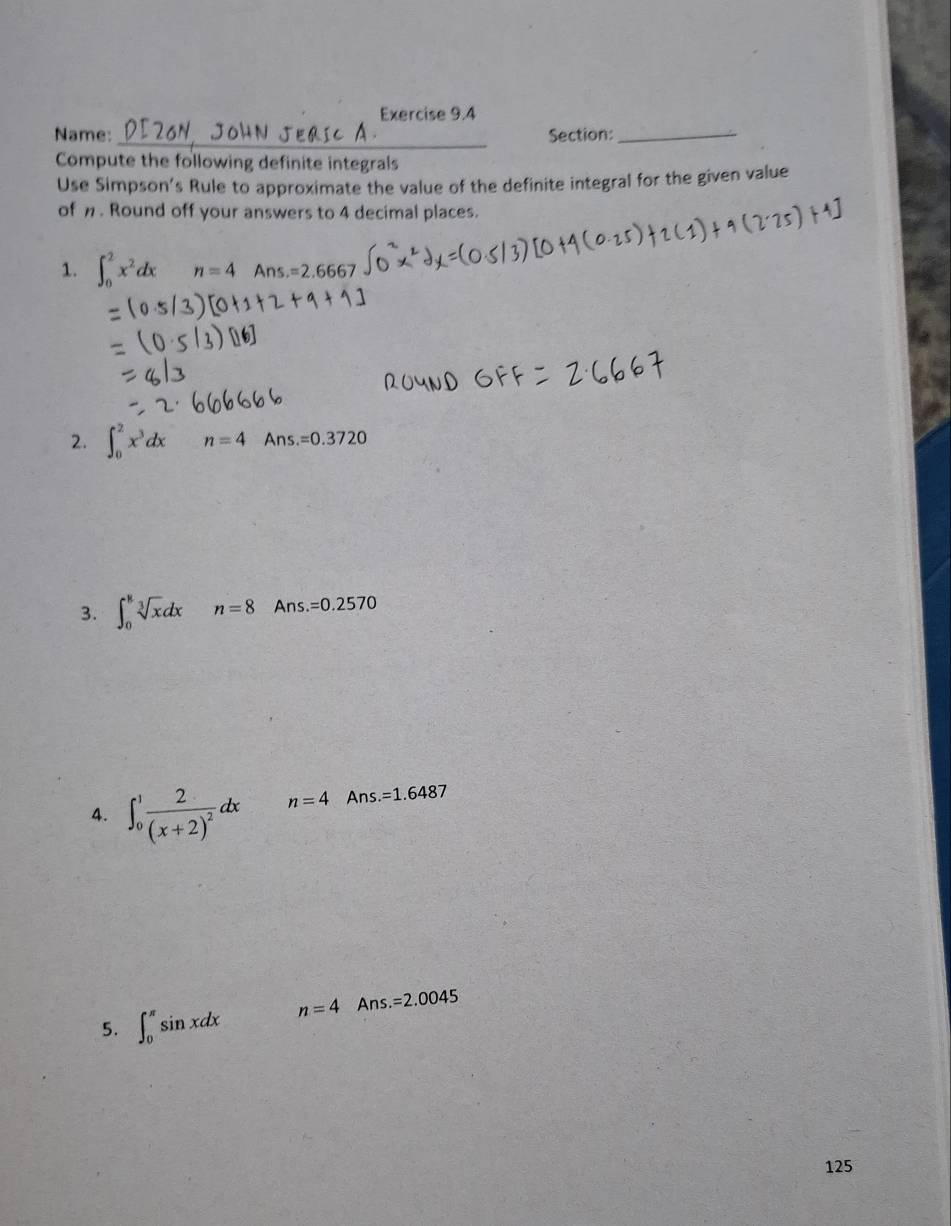 Exercise 9.4
Name: DIZON, JOHN JERIC A.
Section:
Compute the following definite integrals
Use Simpson's Rule to approximate the value of the definite integral for the given value
of n. Round off your answers to 4 decimal places.
1. ∫₀² x²dx n = 4 Ans.=2.6667 ∫0² x² dx = (0.5/3)[0+4(0.25)+2(1)+4(2.25)+4]
= (0.5/3)[0+1+2+9+4]
= (0.5/3)[16]
= 8/3
= 2.666666 ROUND OFF = 2.6667
2. ∫₀² x³dx n = 4 Ans.=0.3720
3. ∫₀⁸ ∛x dx n = 8 Ans.=0.2570
4. ∫₀¹ 2/(x+2)² dx n = 4 Ans.=1.6487
5. ∫₀^π sin xdx n = 4 Ans.=2.0045
125